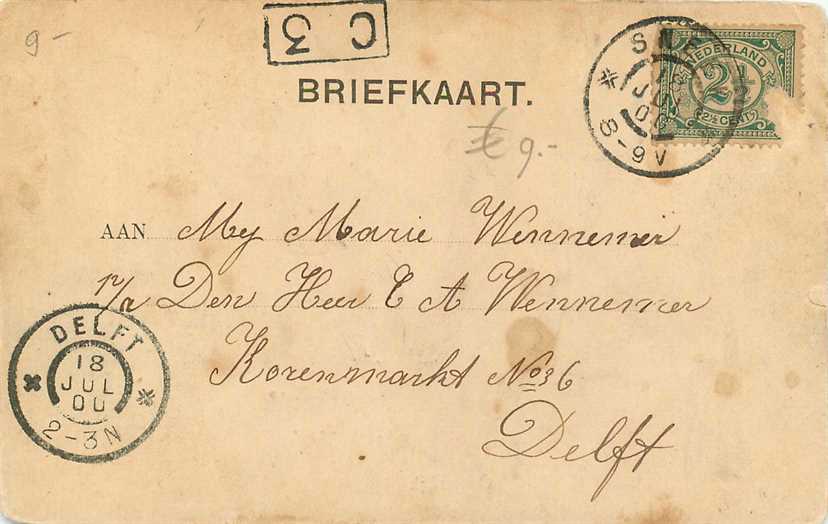 9-
C 3
BRIEFKAART.
18 JUL 00
8-9V
NEDERLAND
2½
2½ CENT
€ 9.-
AAN Mej Marie Wennemer
p/a Den Heer C A Wennemer
Korenmarkt No 36
Delft
DELFT
18
JUL
00
2-3N